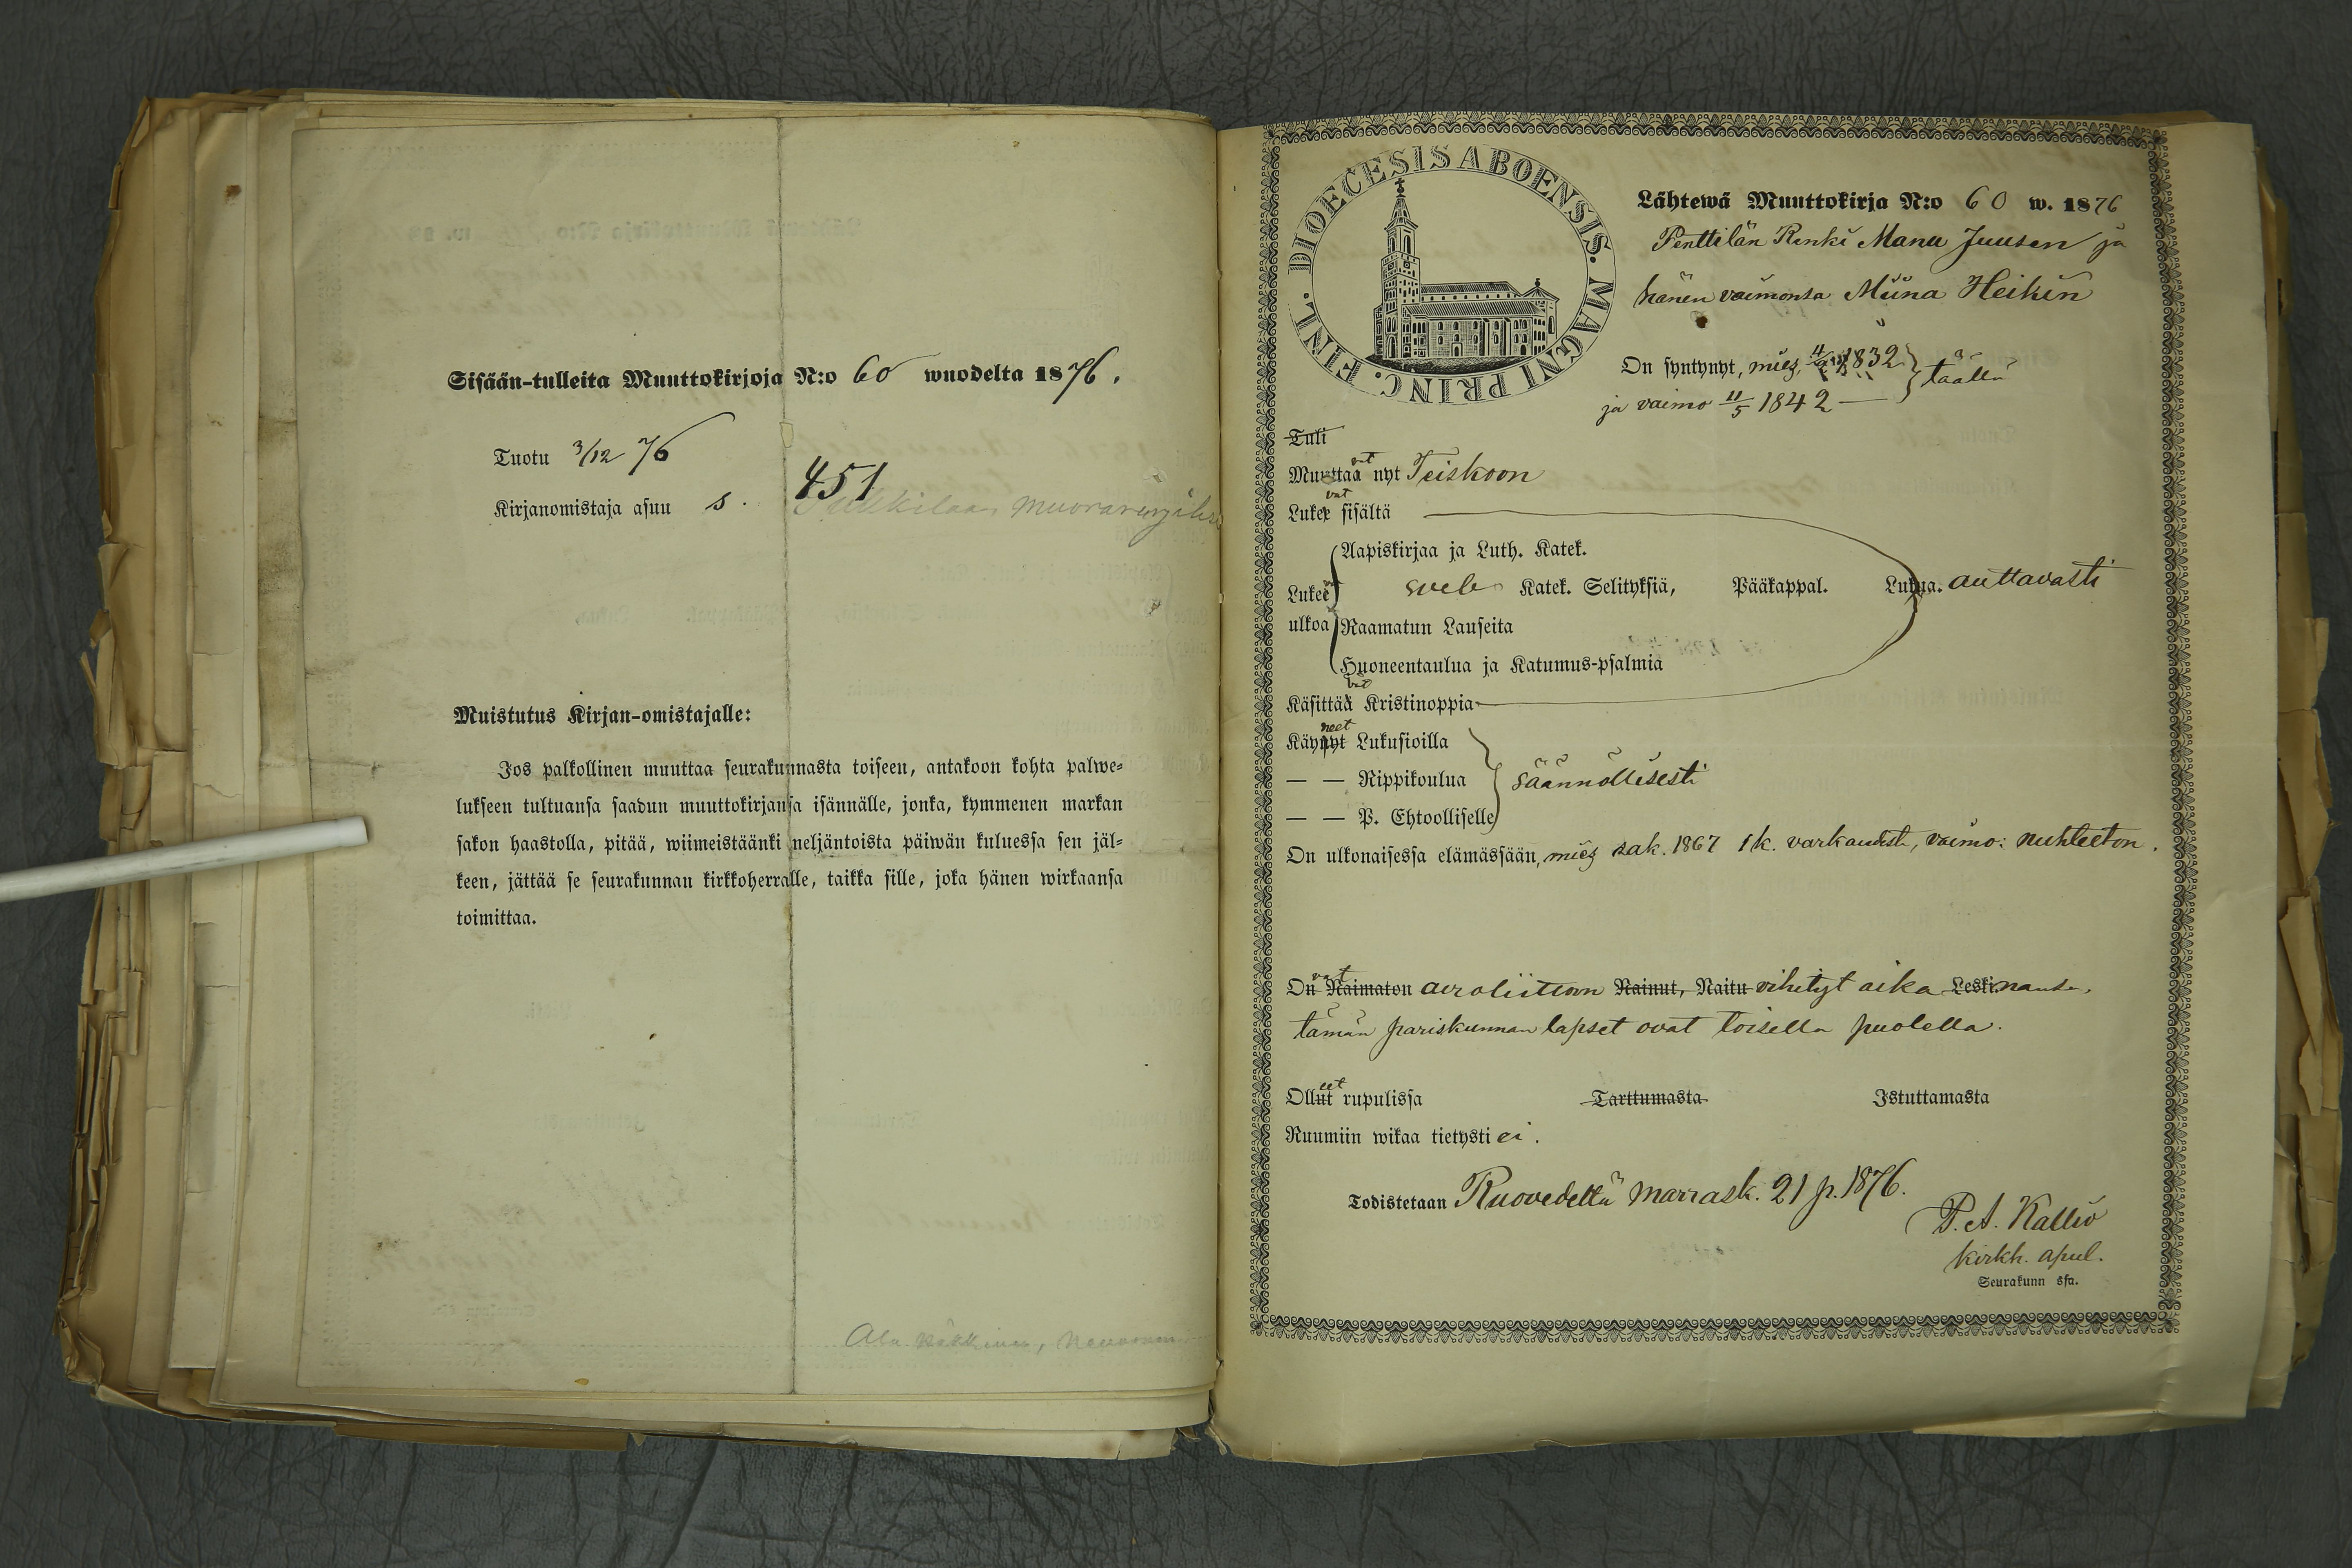 Sisään-tulleita Muuttokirjoja N:o 60 wuodelta 1876.
Tuotu 3/12 76
Kirjanomistaja asuu s. 451
Muistutus Kirjan-omistajalle:
Jos palkollinen muuttaa seurakunnasta toiseen, antakoon kohta palwe-
lukseen tultuansa saadun muuttokirjansa isännälle, jonka, kymmenen markan
sakon haastolla, pitää, wiimeistäänki neljäntoista päiwän kuluessa sen jäl-
keen, jättää se seurakunnan kirkkoherralle, taikka sille, joka hänen wirkaansa
toimittaa.
DIOECESIS ABOENSIS. MAGNI PRINC. FINL.
Lähtewä Muuttokirja N:o 60 w. 1876
Penttilän Renki Manu Juusen ja
hänen vaimonsa Miina Heikin
On syntynyt, mies, 1832 täällä
ja vaimo 11/5 1842
Tuli
Muuttaavat nyt Teiskoon
Lukevat sisältä
Aapiskirjaa ja Luth. Katek.
Lukevat Sveb Katek. Selityksiä, Pääkappal. Lukua. auttavasti
ulkoa Raamatun Lauseita
Huoneentaulua ja Katumus-psalmia
Käsittävät Kristinoppia
Käyneet Lukusioilla
— — Rippikoulua säännöllisesti
— — P. Ehtoolliselle
On ulkonaisessa elämässään, mies sak. 1867 1 k. varkaudesta, vaimo: nuhteeton.
Ovat Naimaton avioliittoon Nainut, Naitu vihityt aika Leski nansa,
tämän pariskunnan lapset ovat toisella puolella.
Olleet rupulissa Tarttumasta Istuttamasta
Ruumiin wikaa tietysti ei.
Todistetaan Ruovedeltä Marrask. 21 p. 1876.
P. A. Kallio
kirkh. apul.
Seurakunn ssa.